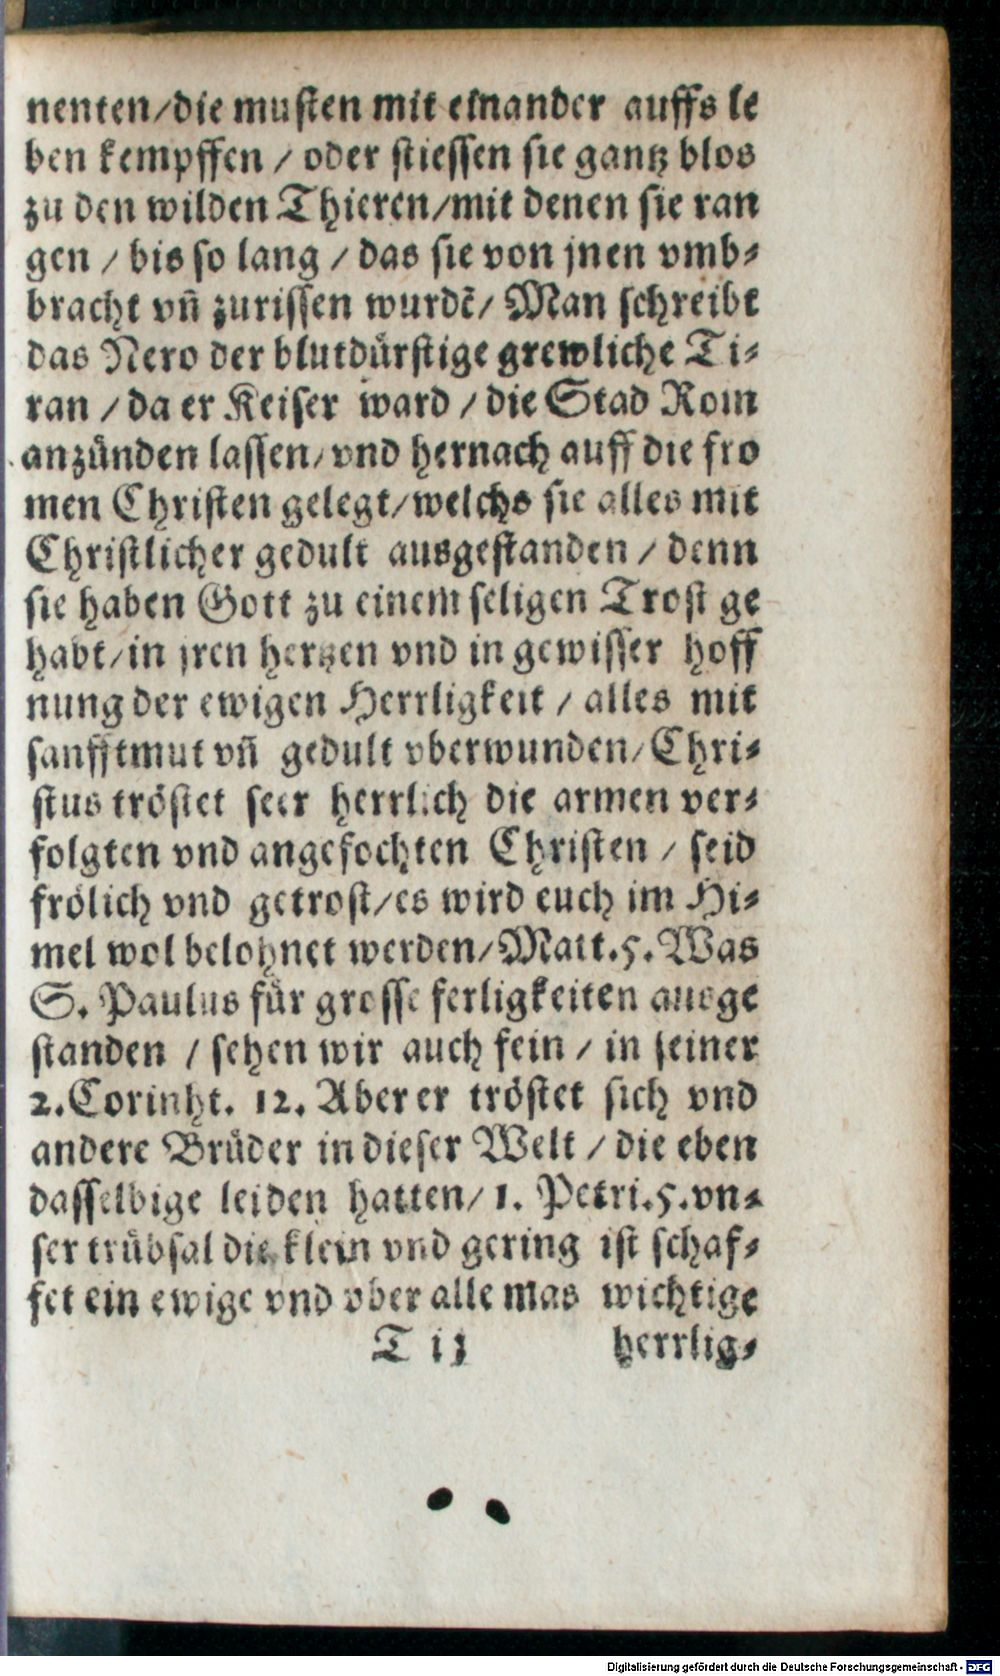 nenten/die musten mit einander auffs le
ben kempffen / oder stiessen sie gantz blos
zu den wilden Thieren/mit denen sie ran
gen / bis so lang / das sie von jnen vmb-
bracht vn̄ zurissen wurdē/ Man schreibt
das Nero der blutdürstige grewliche Ti-
ran / da er Keiser ward / die Stad Rom
anzünden lassen/ vnd hernach auff die fro
men Christen gelegt/welchs sie alles mit
Christlicher gedult ausgestanden / denn
sie haben Gott zu einem seligen Trost ge
habt/in jren hertzen vnd in gewisser hoff
nung der ewigen Herrligkeit / alles mit
sanfftmut vn̄ gedult vberwunden/ Chri-
stus tröstet seer herrlich die armen ver-
folgten vnd angefochten Christen / seid
frölich vnd getrost/es wird euch im Hi-
mel wol belohnet werden/Matt.5. Was
S. Paulus für grosse ferligkeiten ausge
standen / sehen wir auch fein / in seiner
2.Corinht. 12. Aber er tröstet sich vnd
andere Brüder in dieser Welt / die eben
dasselbige leiden hatten/ 1. Petri.5.vn-
ser trübsal die klein vnd gering ist schaf-
fet ein ewige vnd vber alle mas wichtige
T ij herrlig-
Digitalisierung gefördert durch die Deutsche Forschungsgemeinschaft - DFG